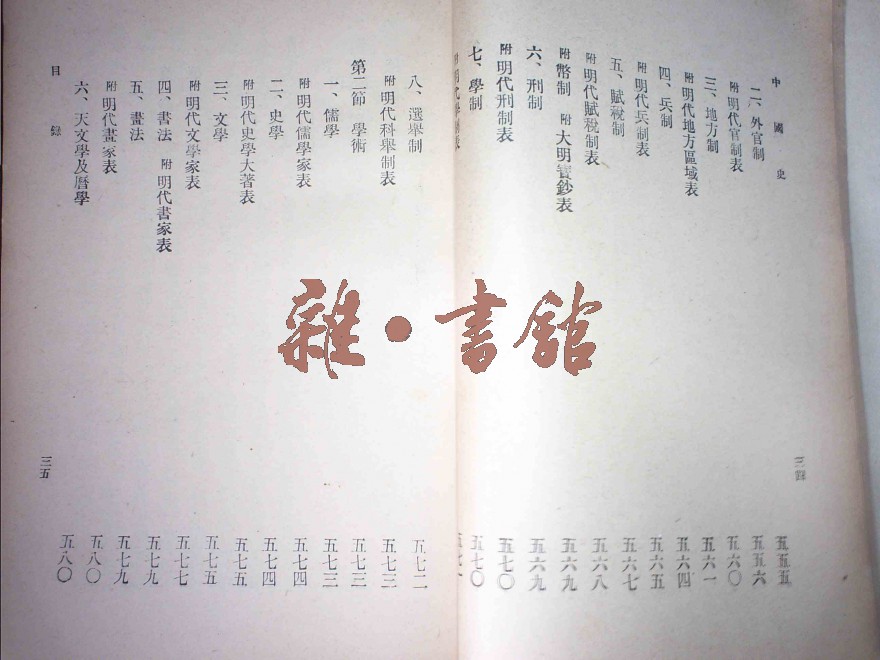 中國史
三四
二、外官制 五五五
附明代官制表 五五六
三、地方制 五六〇
附明代地方區域表 五六一
四、兵制 五六四
附明代兵制表 五六五
五、賦稅制 五六七
附明代賦稅制表 五六八
附幣制 附大明寶鈔表 五六九
六、刑制 五六九
附明代刑制表 五七〇
七、學制 五七〇
附明代學制表 五七一
八、選舉制 五七二
附明代科舉制表 五七三
第二節 學術 五七三
一、儒學 五七三
附明代儒學家表 五七四
二、史學 五七四
附明代史學大著表 五七五
三、文學 五七五
附明代文學家表 五七七
四、書法 附明代書家表 五七九
五、畫法 五七九
附明代畫家表 五八〇
六、天文學及曆學 五八〇
目錄
三五
雜•書館